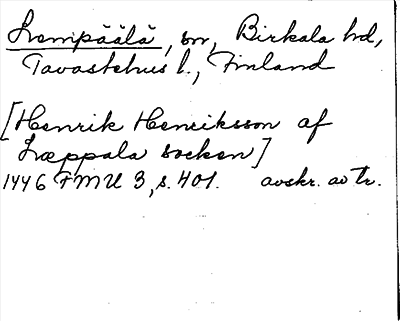 Lempäälä, sn, Birkala hd,
Tavastehus l., Finland
[Henrik Henriksson af
Læppala socken]
1446 FMU 3, s. 401. avskr. av tr.